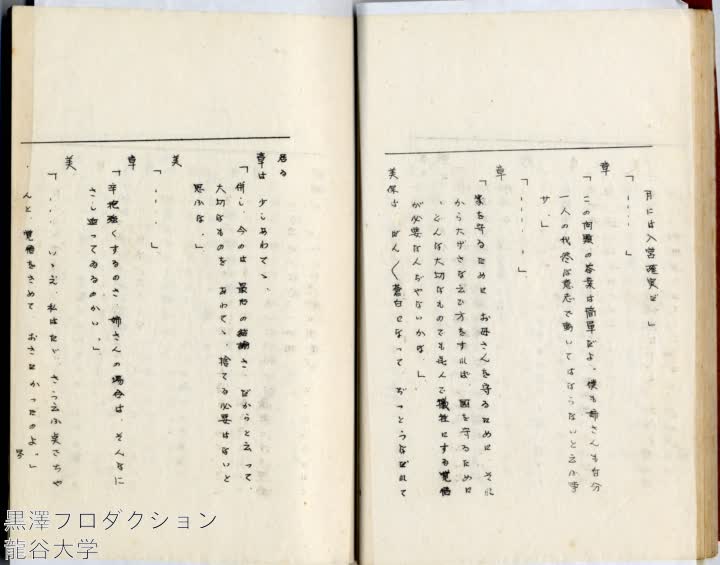 月には入営確実だ。」
章
「この問題の答案は簡単だよ、僕も姉さんも自分
一人の代 意志で動いてはならないと云ふ事
サ。」
「・・・・・」
章
「家を守るために お母さんを守るために それ
から大げさな云ひ方をすれば、国を守るために
、どんな大切なものでも喜んで犠牲にする覚悟
が必要なんぢやないかな。」
美保は だん〱蒼白になって ぢっとうなだれて
居る
章は 少しあわてゝ、
「併し、今のは 最悪の結論さ、だからと云って、
大切なものを あわてゝ、捨てる必要はないと
思ふな。」
美
「・・・・・」
章
「辛抱強くするのさ、姉さんの場合は、そんなに
さし迫ってゐるのかい。」
美
「・・・・ いゝえ、私はたゞ、さう云ふ 」ちや
んと、覚悟をきめて おきたかったのよ。」
黒澤プロダクション
龍谷大学